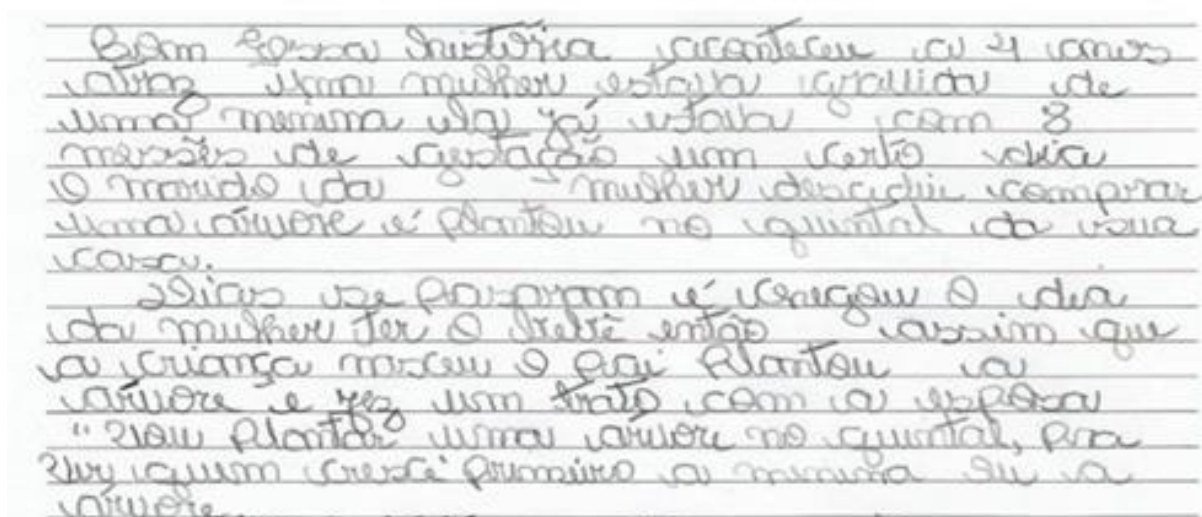 Bom Essa história aconteceu a 4 anos
atras uma mulher estava gravida de
uma menina ela já estava com 8
messes de gestação um certo dia
o marido da mulher descidiu comprar
uma árvore é plantou no quintal da sua
casa.
Dias se pasaram é chegou o dia
da mulher ter o bebê então assim que
a criança nasceu o pai plantou a
árvore e fez um trato com a esposa
"Vou plantar uma árvore no quintal, pra
ver quem cresce primeiro a menina eu a
árvore